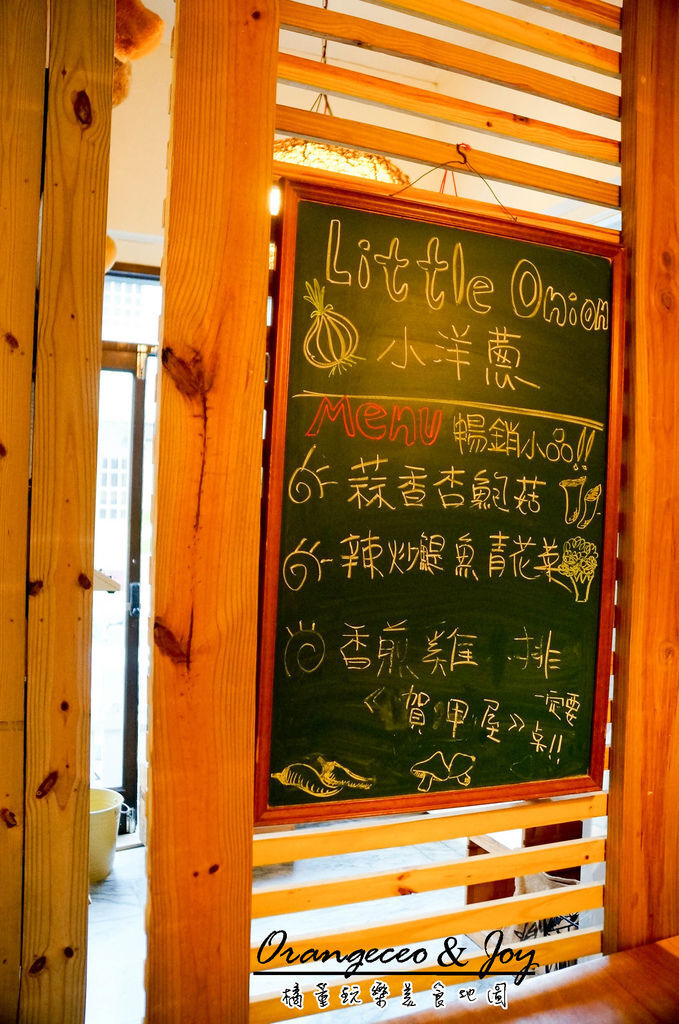 Little Onion
小洋蔥
Menu 暢銷小品!!
蒜香杏鮑菇
辣炒鯷魚青花菜
香煎雞 排
《賀甲屋》一定要
點!!
Orangeceo & Joy
橘董玩樂美食地圖